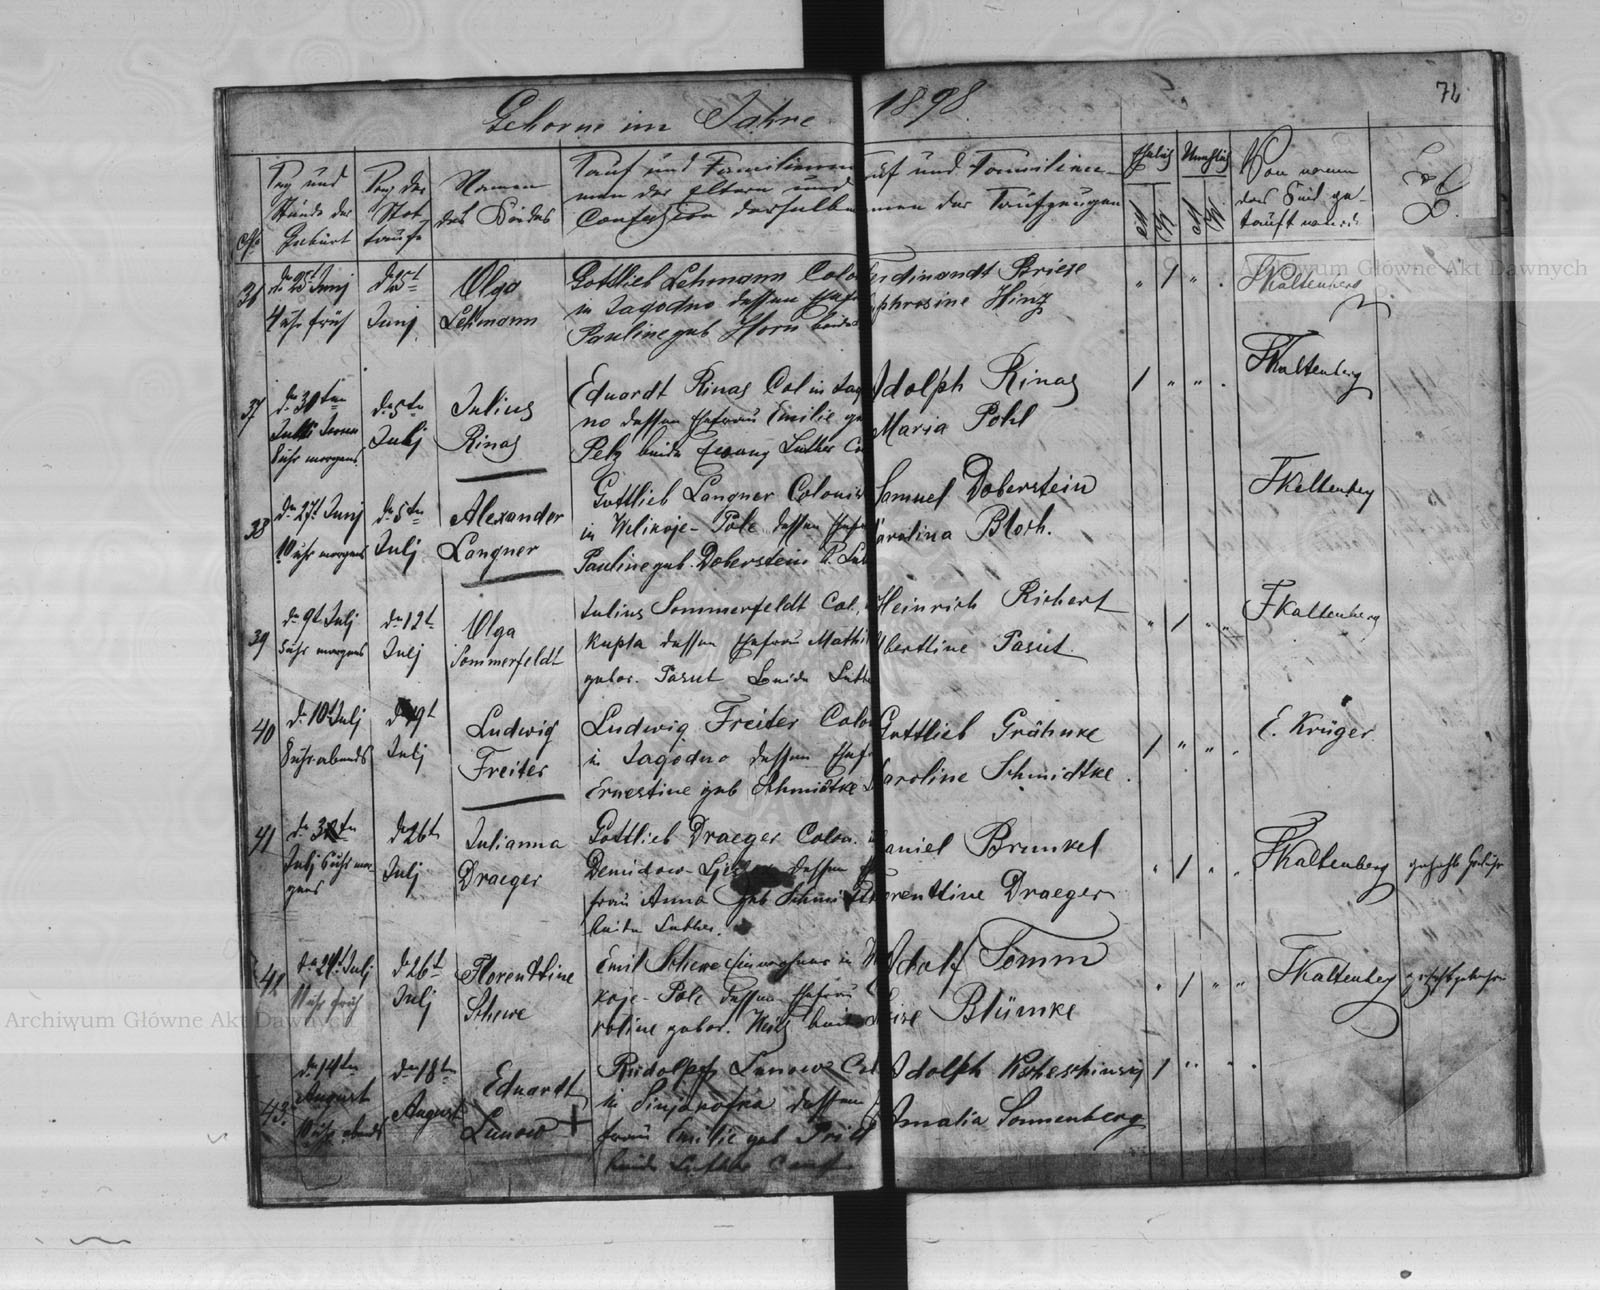 Geborne im Jahre 1898.
76
No
Tag und
Stunde der
Geburt
Tag der
Not
taufe
Namen
des Kindes
Tauf und Familienna
men der Eltern und
Confession derselben
Tauf und Familien-
namen der Taufzeugen
Ehelich
Unehlich
M
W
M
W
Von wem
das Kind ge-
tauft
36
d. 25t Junj
4 uhr früh
d 25t
Junj.
Olga
Lehmann
Gottlieb Lehmann Colo
in Jagodno dessen Ehefr
Pauline geb Horn beide
Ferdinandt Briese
Ephrosine Hinz
F Kaltenberg
37
8 uhr morgens.
d. 5ten
Julj
Julius
Rinas
Eduardt Rinas Col in Jago
no dessen Ehefrau Emilie ge
Pelz beide Evang Luther Co
Adolph Rinas
Maria Pohl
F Kaltenberg
38
d. 27t. Junj
10 uhr morgens
d. 5ten
Julj
Alexander
Langner
Gottlieb Langner Colonis
in Welikoje-Pole dessen Ehefr
Pauline geb. Doberstein b. Lut
Samuel Doberstein
Karolina Bloch.
F Kaltenberg
39
d. 9t Julj
5 uhr morgens
d. 12t
Julj
Olga
Sommerfeldt
Julius Sommerfeldt Col.
Kupta dessen Ehefrau Mathil
gebor. Pasut beide Luthe
Heinrich Richert
Albertine Pasut.
F Kaltenberg
40
d. 10t Julj
8 uhr abends
d 19t
Julj
Ludwig
Freiter
Ludwig Freiter Colo
in Jagodno dessen Ehefr
Ernestine geb Schmidtke
Gottlieb Grähnke
Karoline Schmidtke.
E. Krüger
41
Julj 6 uhr mor-
gens
d 26t
Julj
Julianna
Draeger
Gottlieb Draeger Colon. in
Demidow- dessen Eh
frau Anna geb Schmi
beide Luther.
Daniel Brunkel
Florenttine Draeger
F Kaltenberg
42
d. 21t Julj
11 uhr früh
d 26t
Julj
Florenttine
Schewe
Emil Schewe Einwohner in W
koje-Pole dessen Ehefrau
roline gebor. beide
Adolf Tomm
Luise Blümke
F Kaltenberg
43.
d. 14ten
August
10 uhr abends
d. 18ten
August
Eduardt
Lunow
Rudolph Lunow Col
in Sinjarofka dessen
frau Emilie geb Prill
beide Luther Conf
Adolph Kscheschinsky
Amalia Sonnenberg
Archiwum Główne Akt Dawnych
Archiwum Główne Akt Dawnych